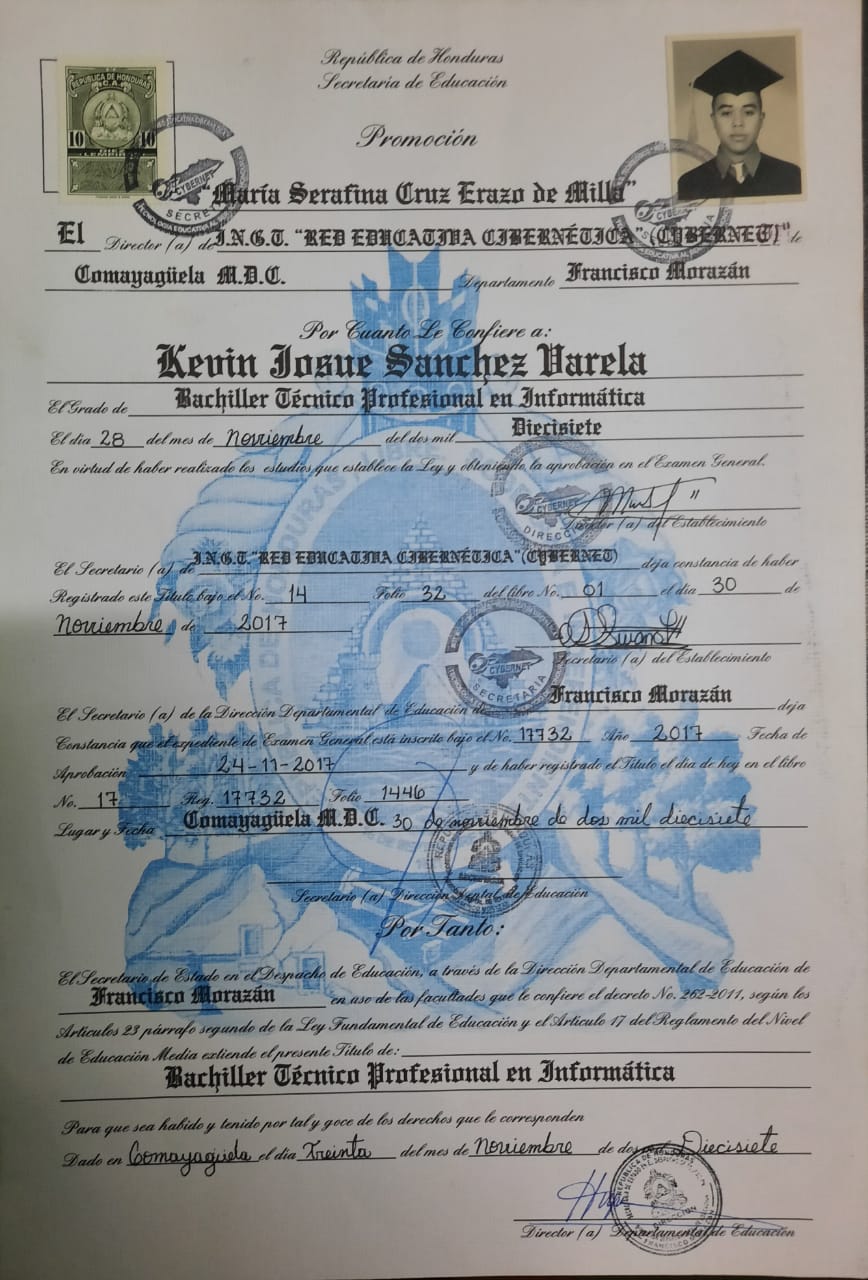 República de Honduras
Secretaría de Educación
REPÚBLICA DE HONDURAS
C.A.
10 10
Promoción
CYBERNET
CYBERNET
"María Serafina Cruz Erazo de Milla"
El Director (a) de I.N.G.T. "RED EDUCATIVA CIBERNÉTICA" (CYBERNET)" de
Comayagüela M.D.C. Departamento Francisco Morazán
Por Cuanto Le Confiere a:
Kevin Josue Sanchez Varela
El Grado de Bachiller Técnico Profesional en Informática
El día 28 del mes de Noviembre del dos mil Diecisiete
En virtud de haber realizado los estudios que establece la Ley y obteniendo la aprobación en el Examen General.
CYBERNET
Director (a) del Establecimiento
El Secretario (a) de I.N.G.T. "RED EDUCATIVA CIBERNÉTICA" (CYBERNET) deja constancia de haber
Registrado este Título bajo el No. 14 Folio 32 del libro No. 01 el día 30 de
Noviembre de 2017
CYBERNET
SECRETARIA
Secretario (a) del Establecimiento
El Secretario (a) de la Dirección Departamental de Educación de Francisco Morazán deja
Constancia que el expediente de Examen General está inscrito bajo el No. 17732 Año 2017 Fecha de
Aprobación 24-11-2017 y de haber registrado el Título el día de hoy en el libro
No. 17 Reg. 17732 Folio 1446
Lugar y Fecha Comayagüela M.D.C. 30 de noviembre de dos mil diecisiete
Secretario (a) Dirección Dptal. de Educación
Por Tanto:
El Secretario de Estado en el Despacho de Educación, a través de la Dirección Departamental de Educación de
Francisco Morazán en uso de las facultades que le confiere el decreto No. 262-2011, según los
Artículos 23 párrafo segundo de la Ley Fundamental de Educación y el Artículo 17 del Reglamento del Nivel
de Educación Media extiende el presente Título de:
Bachiller Técnico Profesional en Informática
Para que sea habido y tenido por tal y goce de los derechos que le corresponden
Dado en Comayagüela el día Treinta del mes de Noviembre de dos mil Diecisiete
Director (a) Departamental de Educación